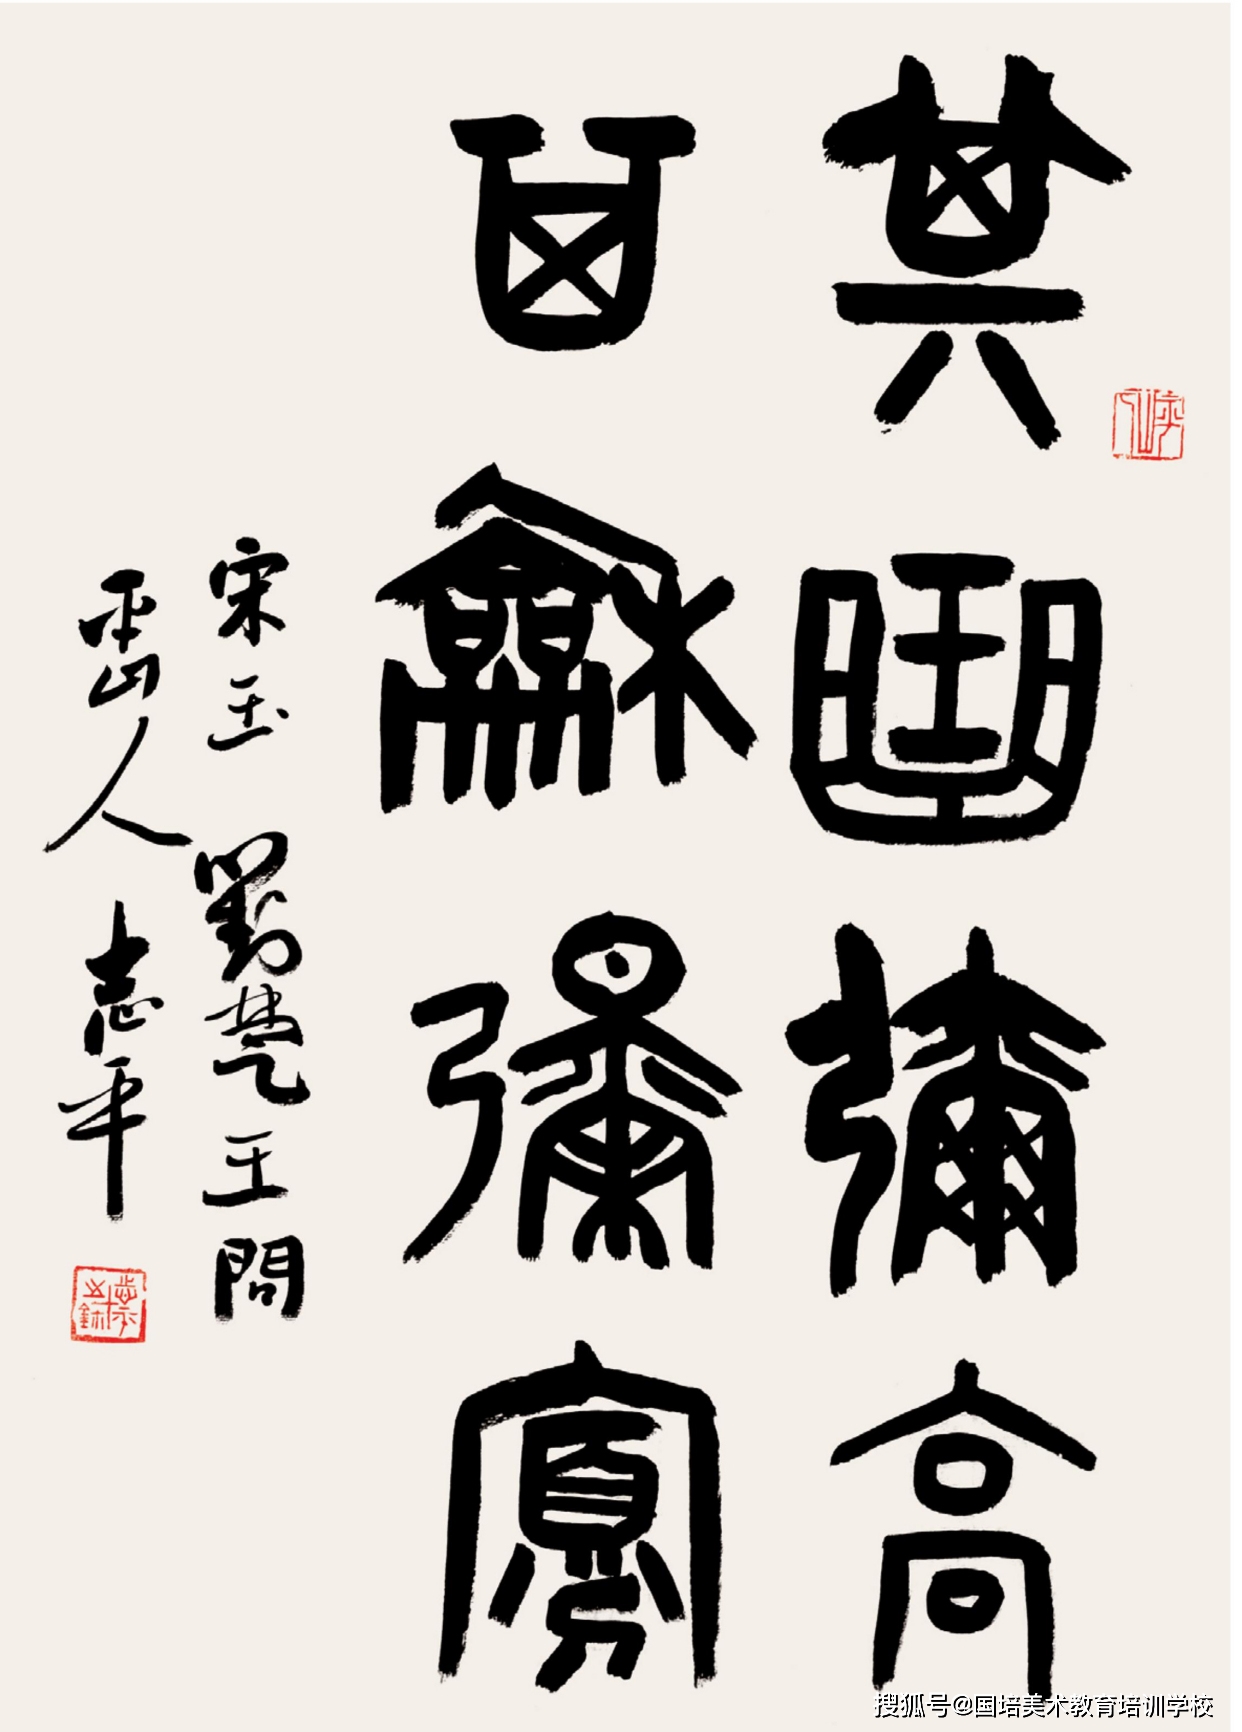 其曲彌高
其龢彌寡
宋玉對楚王問
雪山人志平
搜狐号@国培美术教育培训学校